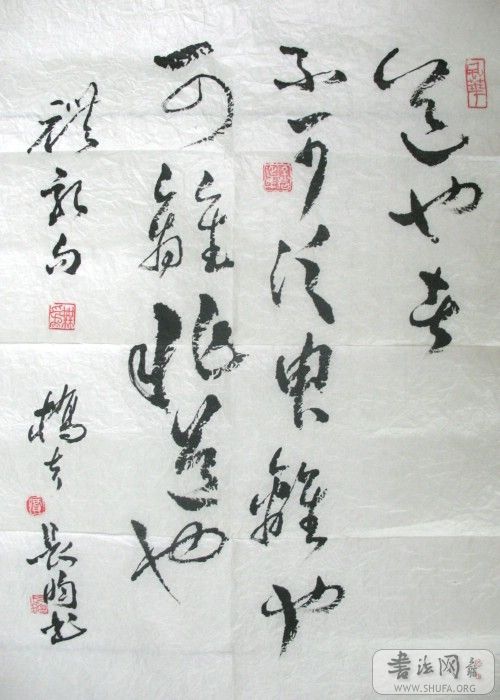 道也者
不可須臾離也
可離非道也
禮記句
書法网
WWW.SHUFA.ORG